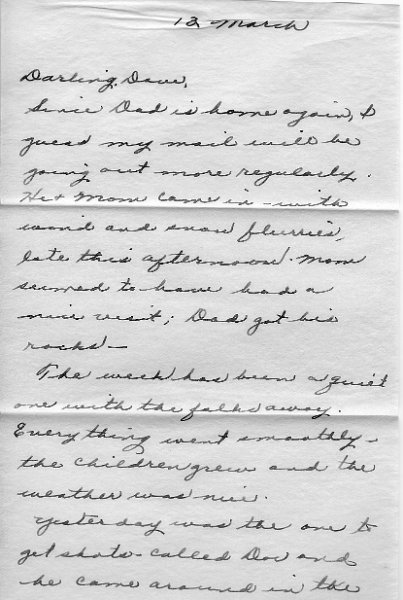 12 March
Darling Dave,
Since Dad is home again, I
guess my mail will be
going out more regularly.
He + Mom came in - with
wind and snow flurries,
late this afternoon. Mom
seemed to have had a
nice visit; Dad got his
rocks -
The week has been a quiet
one with the folks away.
Everything went smoothly -
the children grew and the
weather was nice.
Yesterday was the one to
get shots - called Doc and
he came around in the